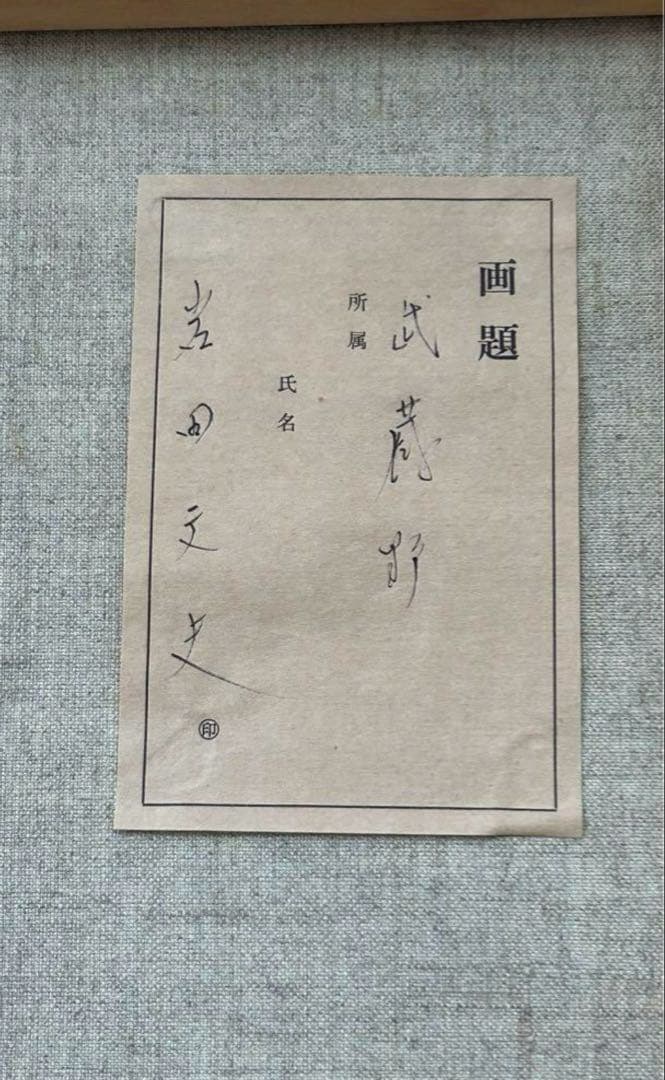 画題
武蔵野
所属
氏名
岩田文夫
印